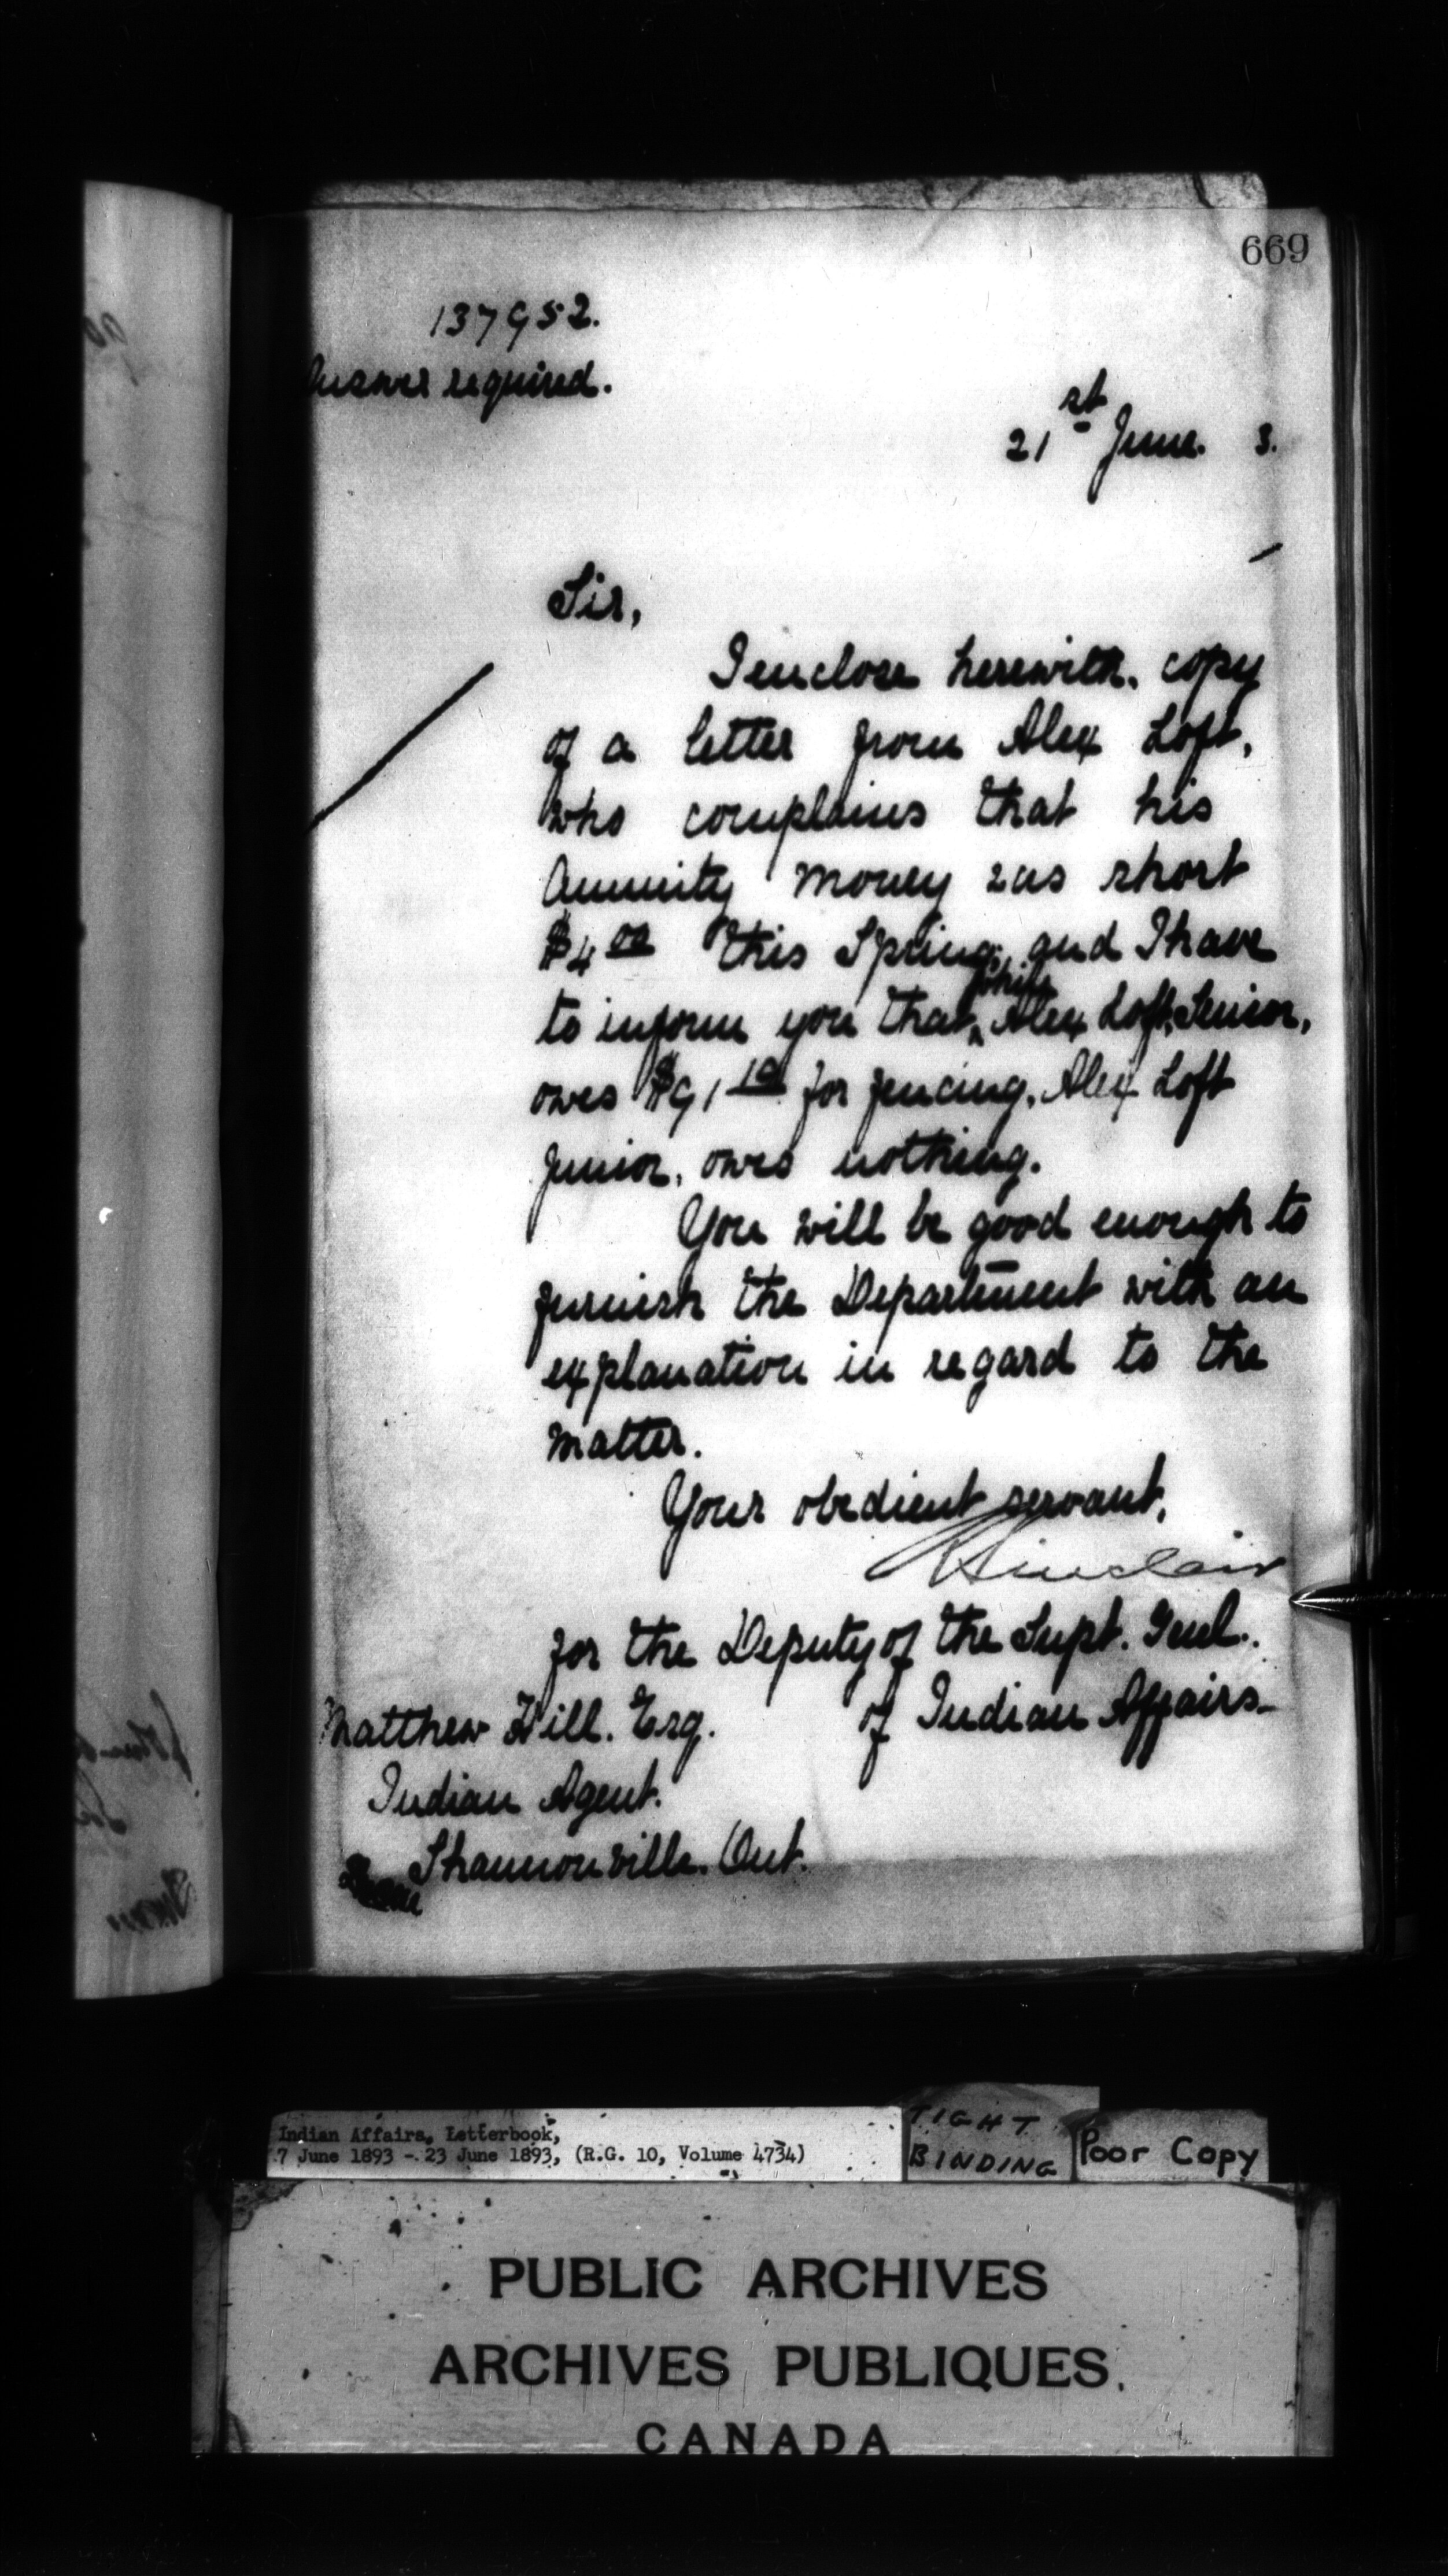 669
137952.
Answer required.
21st June. 3.
Sir,
I enclose herewith, copy
of a letter from Alex Loft,
who complains that his
Annuity money was short
$4.00 this Spring, and I have
to inform you that, while Alex Loft, Senior,
owes $91.10 for fencing, Alex Loft
Junior, owes nothing.
You will be good enough to
furnish the Department with an
explanation in regard to the
matter.
Your obedient servant,
Sinclair
for the Deputy of the Supt. Genl.
of Indian Affairs
Matthew Hill. Esq.
Indian Agent.
Shannonville. Ont.
Indian Affairs, Letterbook,
7 June 1893 - 23 June 1893, (R.G. 10, Volume 4734)
TIGHT
BINDING
Poor Copy
PUBLIC ARCHIVES
ARCHIVES PUBLIQUES
CANADA